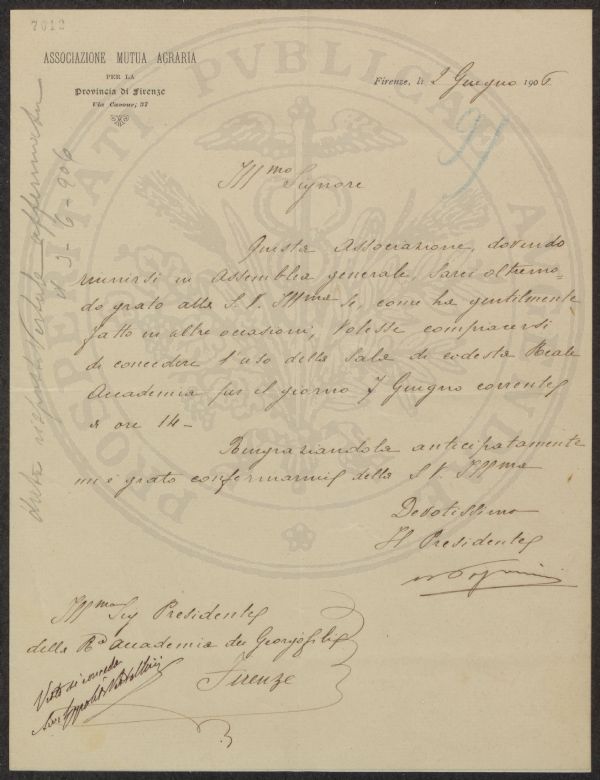 7012
ASSOCIAZIONE MUTUA AGRARIA
PER LA
Provincia di Firenze
Via Cavour, 37
Firenze, li 2 Giugno 1906
91
PROSPERITATI PVBLICAE
Ill.mo Signore
Questa Associazione, dovendo
riunirsi in Assemblea generale, sarei oltremo-
do grato alla S. V. Ill.ma se, come ha gentilmente
fatto in altre occasioni, volesse compiacersi
di concedere l'uso della Sala di codesta Reale
Accademia per il giorno 7 Giugno corrente
a ore 14 -
Ringraziandola anticipatamente
mi è grato confermarmi della S. V. Ill.ma
Devotissimo
Il Presidente
Ill.mo Sig Presidente
della R.a Accademia dei Georgofili
Firenze
Visto si conceda
data risposta verbale affermativa
il 3-6-906